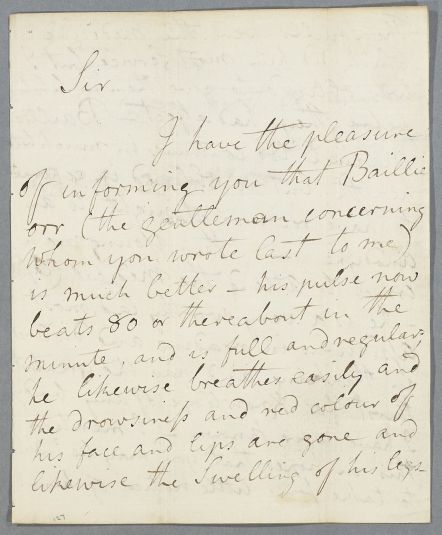 Sir
I have the pleasure
of informing you that Baillie
orr (the gentleman concerning
whom you wrote last to me)
is much better – his pulse now
beats 80 or thereabout in the
minute, and is full and regular;
he likewise breathes easily and
the drowsiness and red colour of
his face and lips are gone and
likewise the Swelling of his legs–